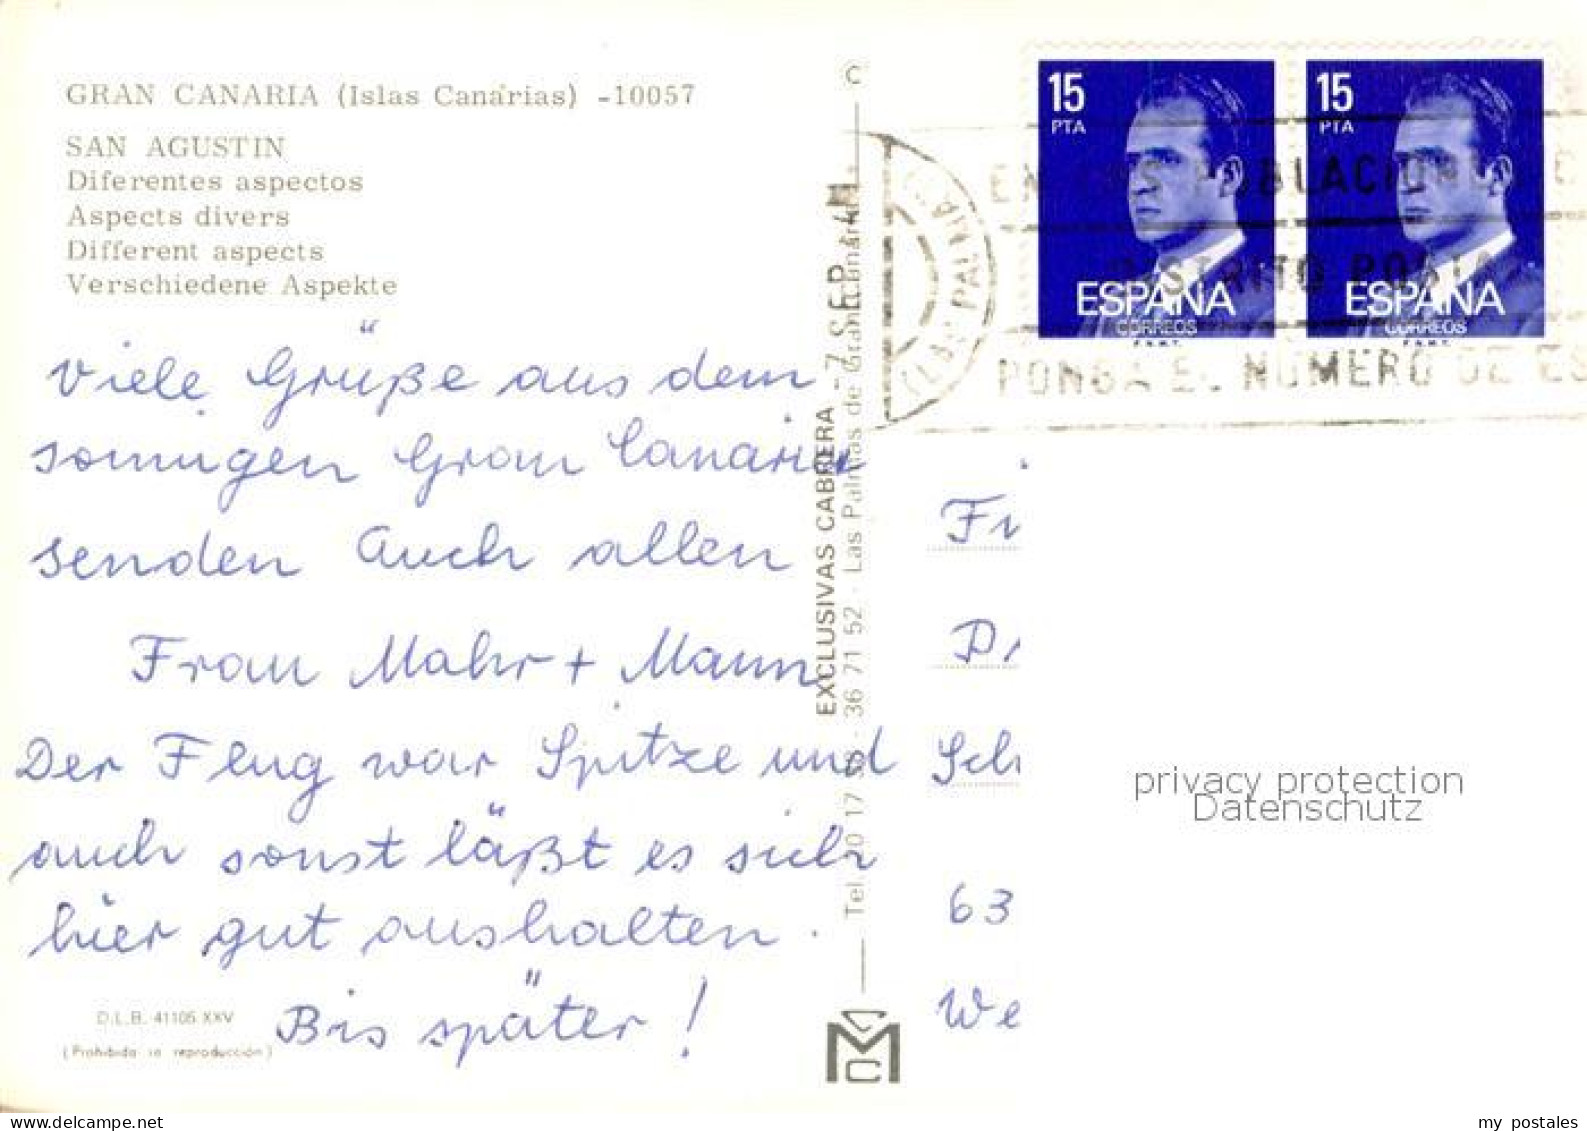 GRAN CANARIA (Islas Canarias) -10057
SAN AGUSTIN
Diferentes aspectos
Aspects divers
Different aspects
Verschiedene Aspekte
Viele Grüße aus dem
sonnigen Gran Canaria
senden Auch allen
Frau Mahr + Mann
Der Flug war Spitze und
auch sonst läßt es sich
hier gut aushalten.
Bis später!
D.L.B. 41105 XXV
(Prohibida la reproducción)
EXCLUSIVAS CABRERA - 7 SEP.
Tel. 20 17 · 36 71 52 · Las Palmas de Gran Canaria
C
M
C
15
PTA
ESPAÑA
CORREOS
F.N.M.T.
15
PTA
ESPAÑA
CORREOS
F.N.M.T.
POBLACIONES
DISTRITO POSTAL
PONGA EL NUMERO DE ES
(LAS PALMAS
Fr
Dr
Sch
63
We
privacy protection
Datenschutz
my postales